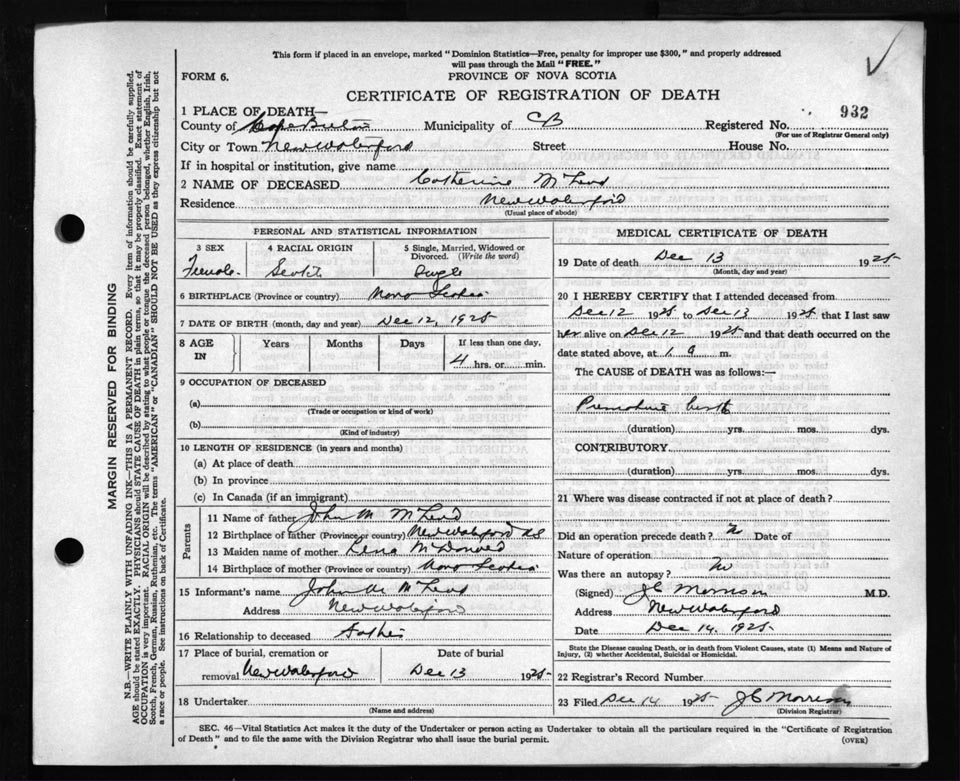 This form if placed in an envelope, marked "Dominion Statistics—Free, penalty for improper use $300," and properly addressed
will pass through the Mail "FREE."
FORM 6.
PROVINCE OF NOVA SCOTIA
CERTIFICATE OF REGISTRATION OF DEATH
932
1 PLACE OF DEATH—
County of Cape Breton Municipality of CB Registered No.
(For use of Registrar General only)
City or Town New Waterford Street House No.
If in hospital or institution, give name
2 NAME OF DECEASED Catherine McLeod
Residence New Waterford
(Usual place of abode)
PERSONAL AND STATISTICAL INFORMATION
3 SEX
Female
4 RACIAL ORIGIN
Scotch
5 Single, Married, Widowed or
Divorced. (Write the word)
Single
6 BIRTHPLACE (Province or country) Nova Scotia
7 DATE OF BIRTH (month, day and year) Dec 12, 1925
8 AGE
IN
Years
Months
Days
If less than one day,
4 hrs. or min.
9 OCCUPATION OF DECEASED
(a)
(Trade or occupation or kind of work)
(b)
(Kind of industry)
10 LENGTH OF RESIDENCE (in years and months)
(a) At place of death
(b) In province
(c) In Canada (if an immigrant)
Parents
11 Name of father John M McLeod
12 Birthplace of father (Province or country) New Waterford NS
13 Maiden name of mother Lena McDonald
14 Birthplace of mother (Province or country) Nova Scotia
15 Informant's name John M McLeod
Address New Waterford
16 Relationship to deceased Father
17 Place of burial, cremation or
removal New Waterford
Date of burial
Dec 13 1925
18 Undertaker
(Name and address)
MEDICAL CERTIFICATE OF DEATH
19 Date of death Dec 13 1925
(Month, day and year)
20 I HEREBY CERTIFY that I attended deceased from
Dec 12 1925 to Dec 13 1925 that I last saw
her alive on Dec 12 1925 and that death occurred on the
date stated above, at 1 a m.
The CAUSE of DEATH was as follows:—
Premature birth
(duration) yrs. mos. dys.
CONTRIBUTORY.
(duration) yrs. mos. dys.
21 Where was disease contracted if not at place of death?
Did an operation precede death? No Date of
Nature of operation
Was there an autopsy? No
(Signed) JC Morrison M.D.
Address New Waterford
Date Dec 14, 1925
State the Disease causing Death, or in death from Violent Causes, state (1) Means and Nature of
Injury, (2) whether Accidental, Suicidal or Homicidal.
22 Registrar's Record Number
23 Filed Dec 14 1925 JC Morrison
(Division Registrar)
SEC. 46—Vital Statistics Act makes it the duty of the Undertaker or person acting as Undertaker to obtain all the particulars required in the "Certificate of Registration
of Death" and to file the same with the Division Registrar who shall issue the burial permit.
(OVER)
MARGIN RESERVED FOR BINDING
N.B.—WRITE PLAINLY WITH UNFADING INK—THIS IS A PERMANENT RECORD. Every item of information should be carefully supplied.
AGE should be stated EXACTLY. PHYSICIANS should STATE CAUSE OF DEATH in plain terms, so that it may be properly classified. Exact statement of
OCCUPATION is very important. RACIAL ORIGIN will be described by stating to what people or tongue the deceased person belonged, whether English, Irish,
Scotch, French, German, Russian, Ruthenian, etc. The terms "AMERICAN" or "CANADIAN" SHOULD NOT BE USED as they express citizenship but not
a race or people. See instructions on back of Certificate.